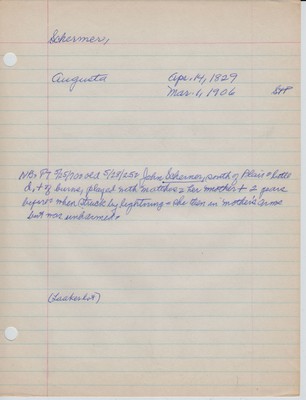 Schermer,
Augusta Apr. 14, 1829
Mar. 1, 1906
NB: PT 5/28/250 John Schermer, south of Blair
d, + of burns, played with matches = her mother + 2 years
before when struck by lightning = she then in mother's arms
but was unharmed =